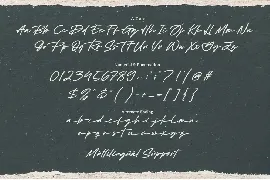 Aa Bb Cc Dd Ee Ff Gg Hh Ii Jj Kk Ll Mm Nn
Oo Pp Qq Rr Ss Tt Uu Vv Ww Xx Yy Zz
Numeral & Punctuation
0123456789
a b c d e f g h i j k l m n
o p q r s t u v w x y z
Multilingual Support